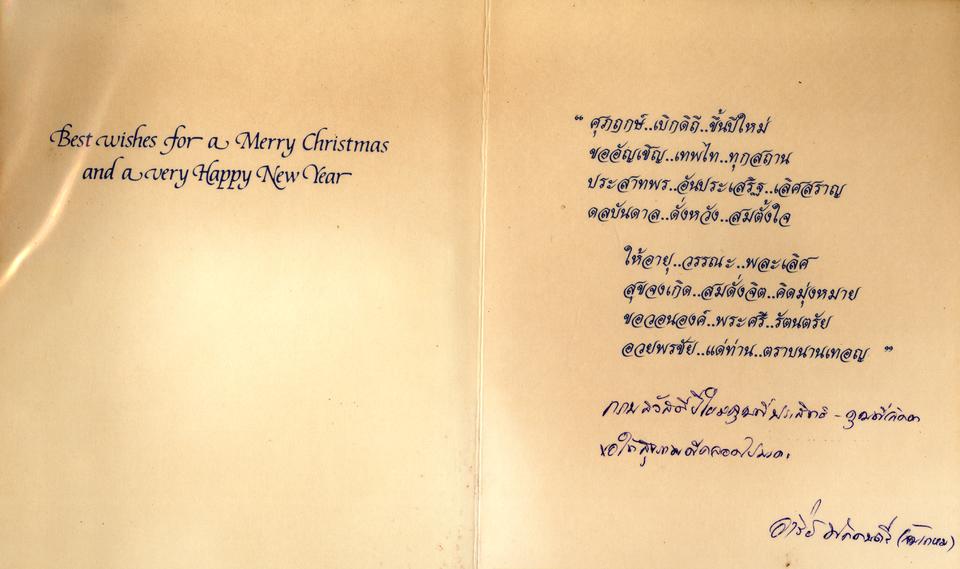 Best wishes for a Merry Christmas
and a very Happy New Year
“ ศุภฤกษ์..เบิกดิถี..ขึ้นปีใหม่
ขออัญเชิญ..เทพไท..ทุกสถาน
ประสาทพร..อันประเสริฐ..เลิศสราญ
ดลบันดาล..ดั่งหวัง..สมตั้งใจ
ให้อายุ..วรรณะ..พละเลิศ
สุขจงเกิด..สมดั่งจิต..คิดมุ่งหมาย
ขอวอนองค์..พระศรี..รัตนตรัย
อวยพรชัย..แด่ท่าน..ตราบนานเทอญ ”